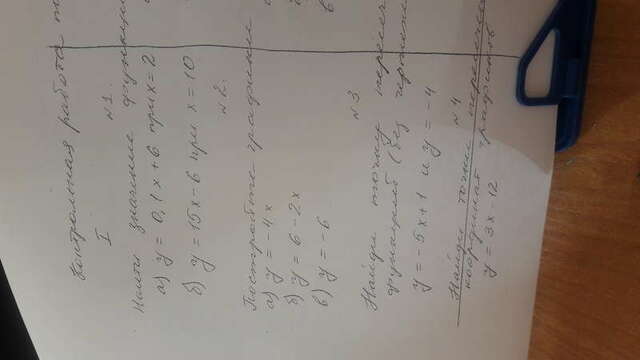 Контрольная работа
I
№1
Найти значение функции
а) y = 0,1x+6 при x=2
б) y = 15x-6 при x = 10
№2.
Постройте графики
а) y = -4x
б) y = 6-2x
в) y = -6
№3
Найди точку
функций (без
y = -5x+1 и y = -4
№4
Найди точки
координат графиков
y = 3x-12